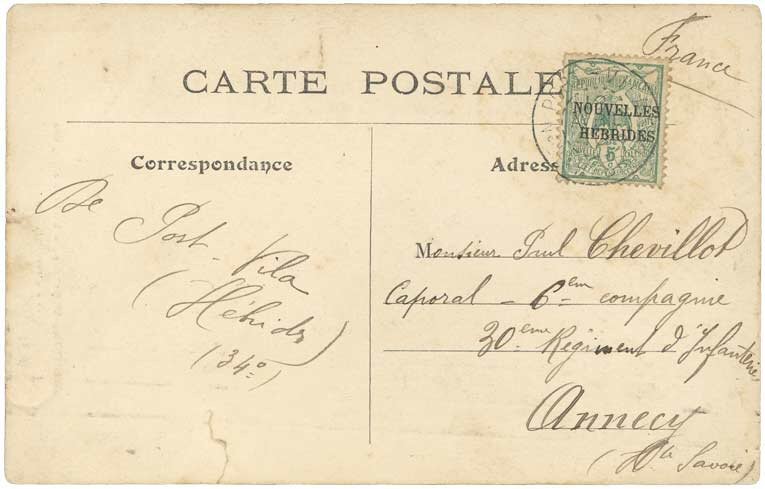 France
CARTE POSTALE
NOUVELLES
HÉBRIDES
5
Correspondance
Adresse
De Port-Vila
(Hébrides)
(34°)
Monsieur Paul Chevillot
Caporal - 6em compagnie
30eme Régiment d'Infanterie
Annecy
(Hte Savoie)